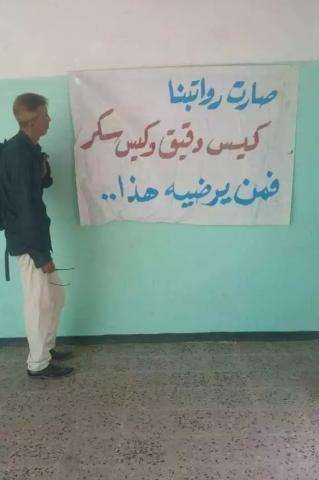 صارت رواتبنا
كيس دقيق وكيس سكر
فمن يرضيه هذا..